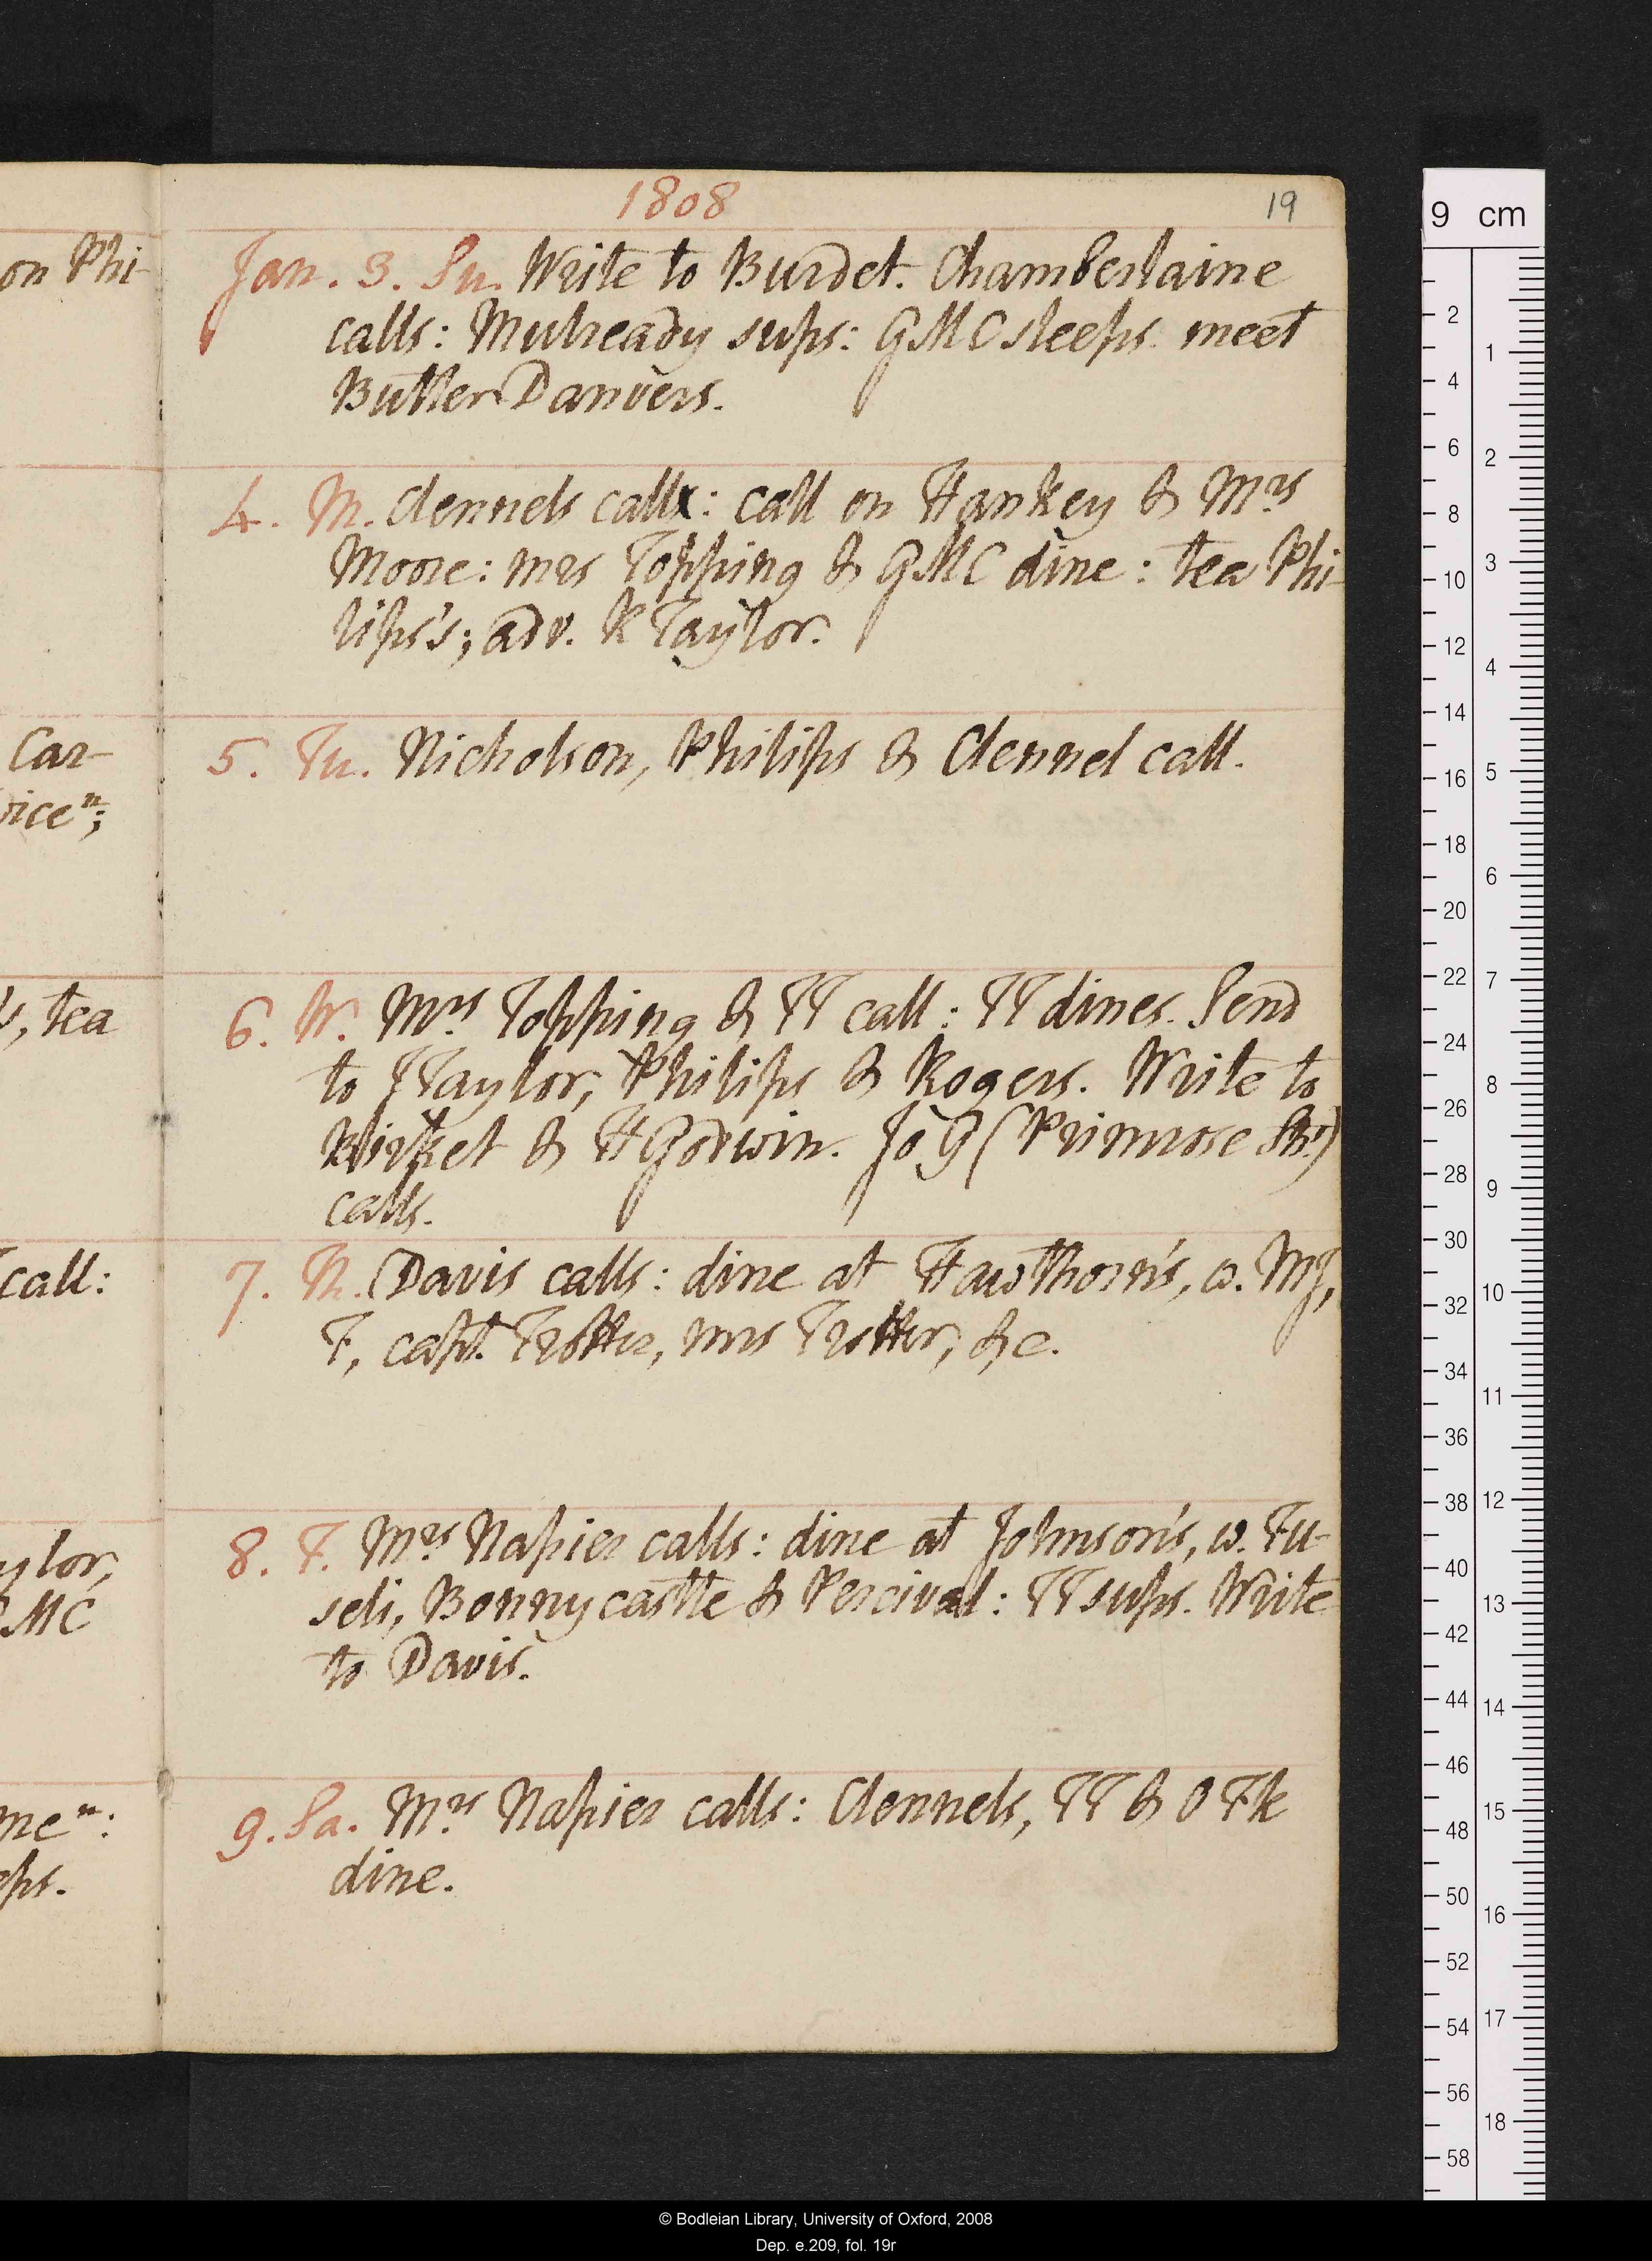 1808
19
on Phi-
Jan. 3. Su. Write to Burdet. Chamberlaine
calls: Mulready sups: GMC sleeps. meet
Butler Danvers.
4. M. Clennels call: call on Hankey & Mrs
Moore: mrs Topping & GMC dine: tea Phi-
lips's; adv. K Taylor.
Car-
vice";
5. Tu. Nicholson, Philips & Clennel call.
s, tea
6. W. Mrs Topping & TT call: TT dines. Send
to J Taylor, Philips & Rogers. Write to
& H Godwin. Jo G (Primrose Str)
calls.
call:
7. Th. Davis calls: dine at Hawthorn's, w. MJ,
F, capt. Trotter, mrs Trotter, &c.
ylor,
GMC
8. F. Mrs Napier calls: dine at Johnson's, w. Fu-
seli, Bonnycastle & Percival: TT sups. Write
to Davis.
me":
eps.
9. Sa. Mrs Napier calls: Clennels, TT & O Fk
dine.
9 cm
2
4
6
8
10
12
14
16
18
20
22
24
26
28
30
32
34
36
38
40
42
44
46
48
50
52
54
56
58
1
2
3
4
5
6
7
8
9
10
11
12
13
14
15
16
17
18
© Bodleian Library, University of Oxford, 2008
Dep. e.209, fol. 19r